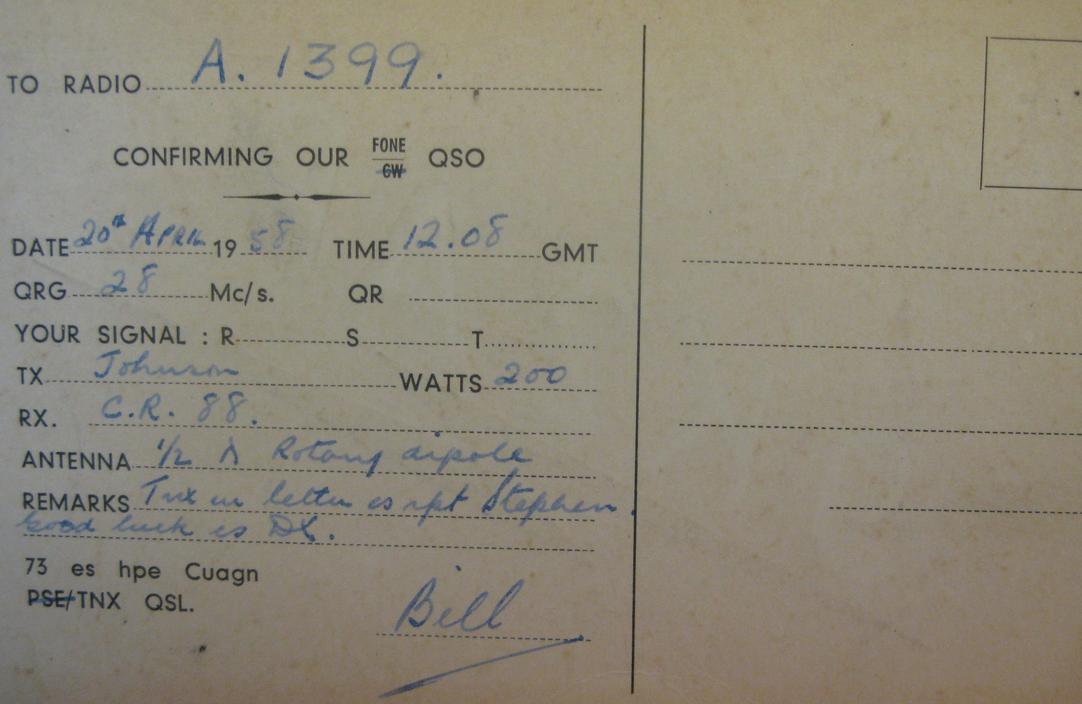 TO RADIO A. 1399.
CONFIRMING OUR FONE/CW QSO
DATE 20th APRIL 1958 TIME 12.08 GMT
QRG 28 Mc/s. QR
YOUR SIGNAL : R S T
TX Johnson WATTS 200
RX. C.R. 88.
ANTENNA 1/2 λ Rotary dipole
REMARKS Tnx ur letter es rpt Stephen.
Good luck es DX.
73 es hpe Cuagn
PSE/TNX QSL.
Bill